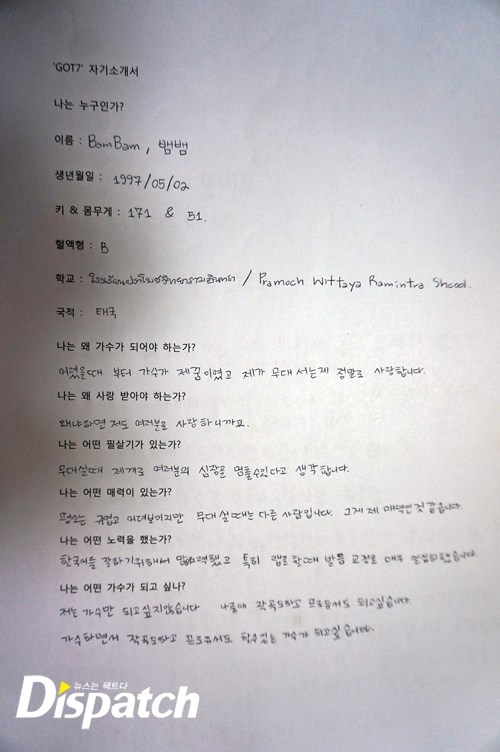 'GOT7' 자기소개서
나는 누구인가?
이름 : BamBam, 뱀뱀
생년월일 : 1997/05/02
키 & 몸무게 : 171 & 51.
혈액형 : B
학교 : / Pramoch Wittaya Ramintra Shcool.
국적 : 태국
나는 왜 가수가 되어야 하는가?
어렸을때 부터 가수가 제꿈이였고 제가 무대 서는게 정말로 사랑합니다.
나는 왜 사랑 받아야 하는가?
왜냐하면 저도 여러분을 사랑하니까요.
나는 어떤 필살기가 있는가?
무대설때 제게로 여러분의 심장을 멈출수있다고 생각 합니다.
나는 어떤 매력이 있는가?
평소는 귀엽고 어려보이지만 무대 설때는 다른 사람입니다. 그게 제 매력인것 같습니다.
나는 어떤 노력을 했는가?
한국어를 잘하기위해서 특히 랩을 할때 발음 교정을 매우 열심히했습니다
나는 어떤 가수가 되고 싶나?
저는 가수만 되고싶지않습니다 나중에 작곡도하고 프로듀서도 되고싶습니다.
가수하면서 작곡도하고 프로듀서도 할수있는 가수가 되고싶습니다.
뉴스는 팩트다
Dispatch